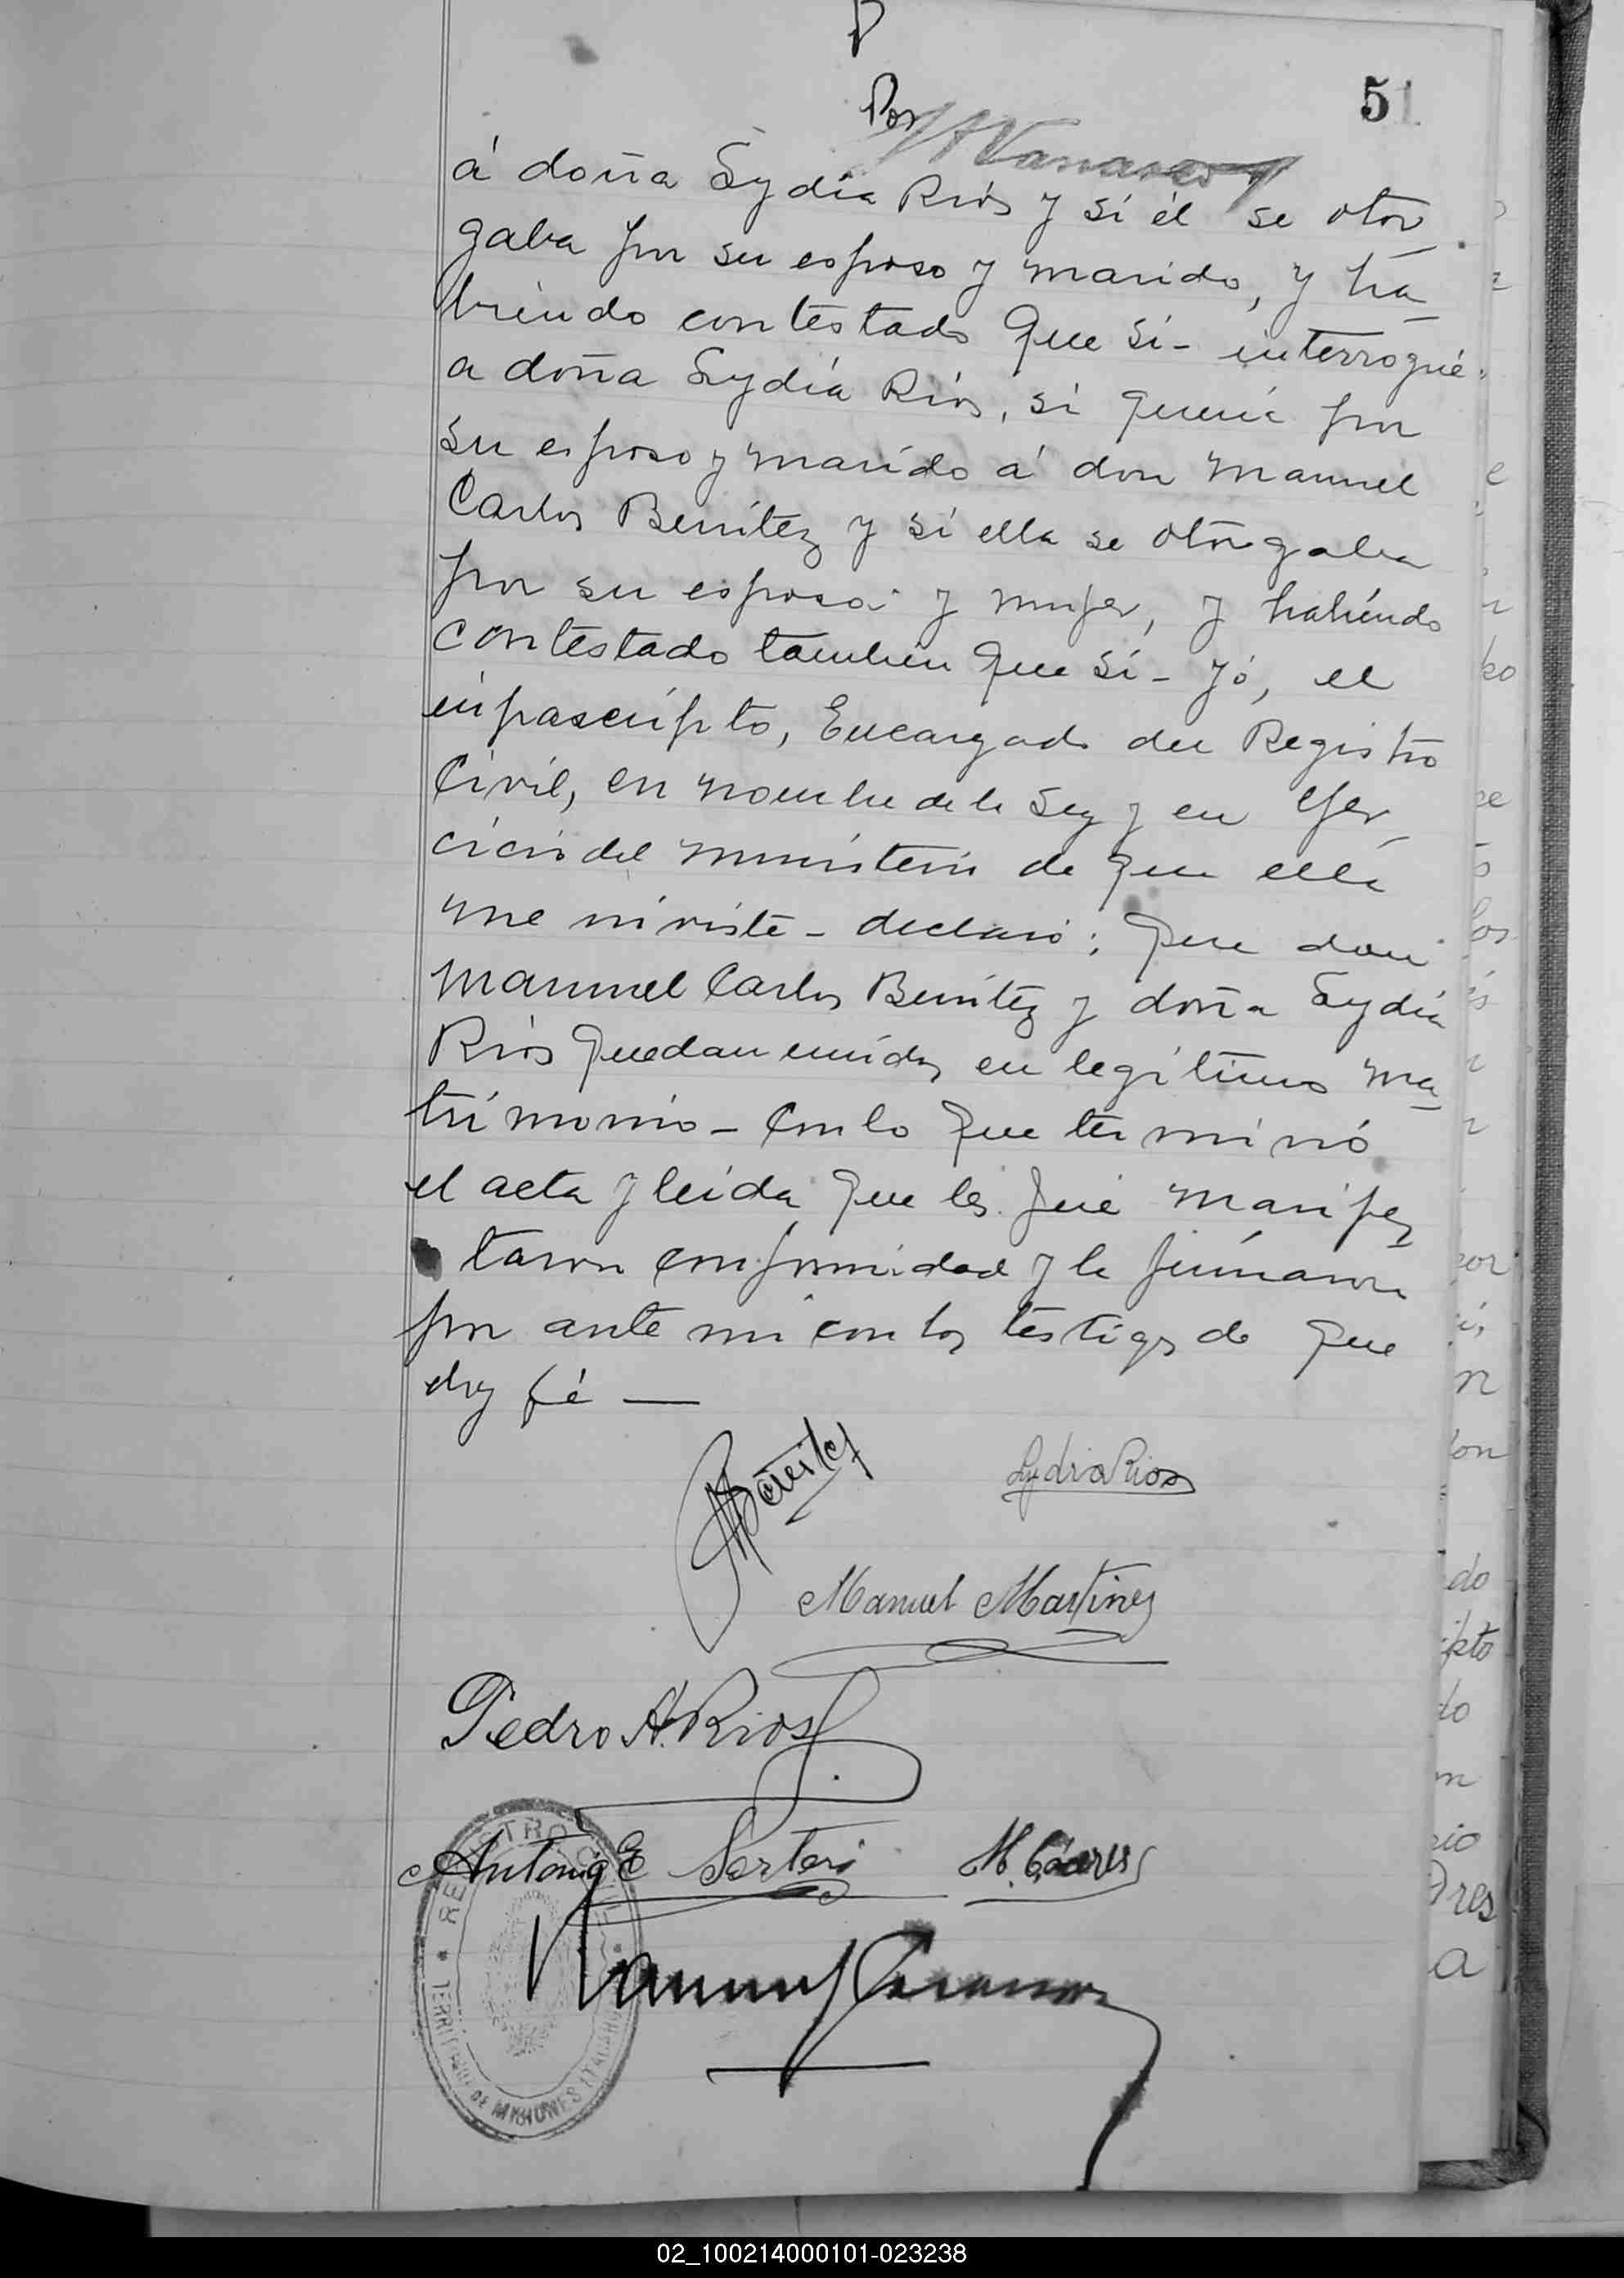 51
Por
á doña Lydia Rios y si él se otor_
gaba por su esposo y marido, y ha_
biendo contestado que si - interrogué
a doña Lydia Rios, si queria por
su esposo y marido á don Manuel
Carlos Benitez y si ella se otorgaba
por su esposa y mujer, y habiendo
contestado tambien que si - yó, el
infrascripto, Encargado del Registro
Civil, en nombre de la Ley y en ejer_
cicio del ministerio de que ella
me inviste - declaro: que don
Manuel Carlos Benitez y doña Lydia
Rios quedan unidos en legitimo ma_
trimonio - Con lo que terminó
el acta y leida que les fué manifes_
taron conformidad y la firmaron
por ante mi con los testigos de que
doy fé —
Benitez
Lydia Rios
Manuel Martinez
Pedro A. Rios
Antonio E Sertori
REGISTRO CIVIL
TERRITORIO DE MISIONES
02_100214000101-023238